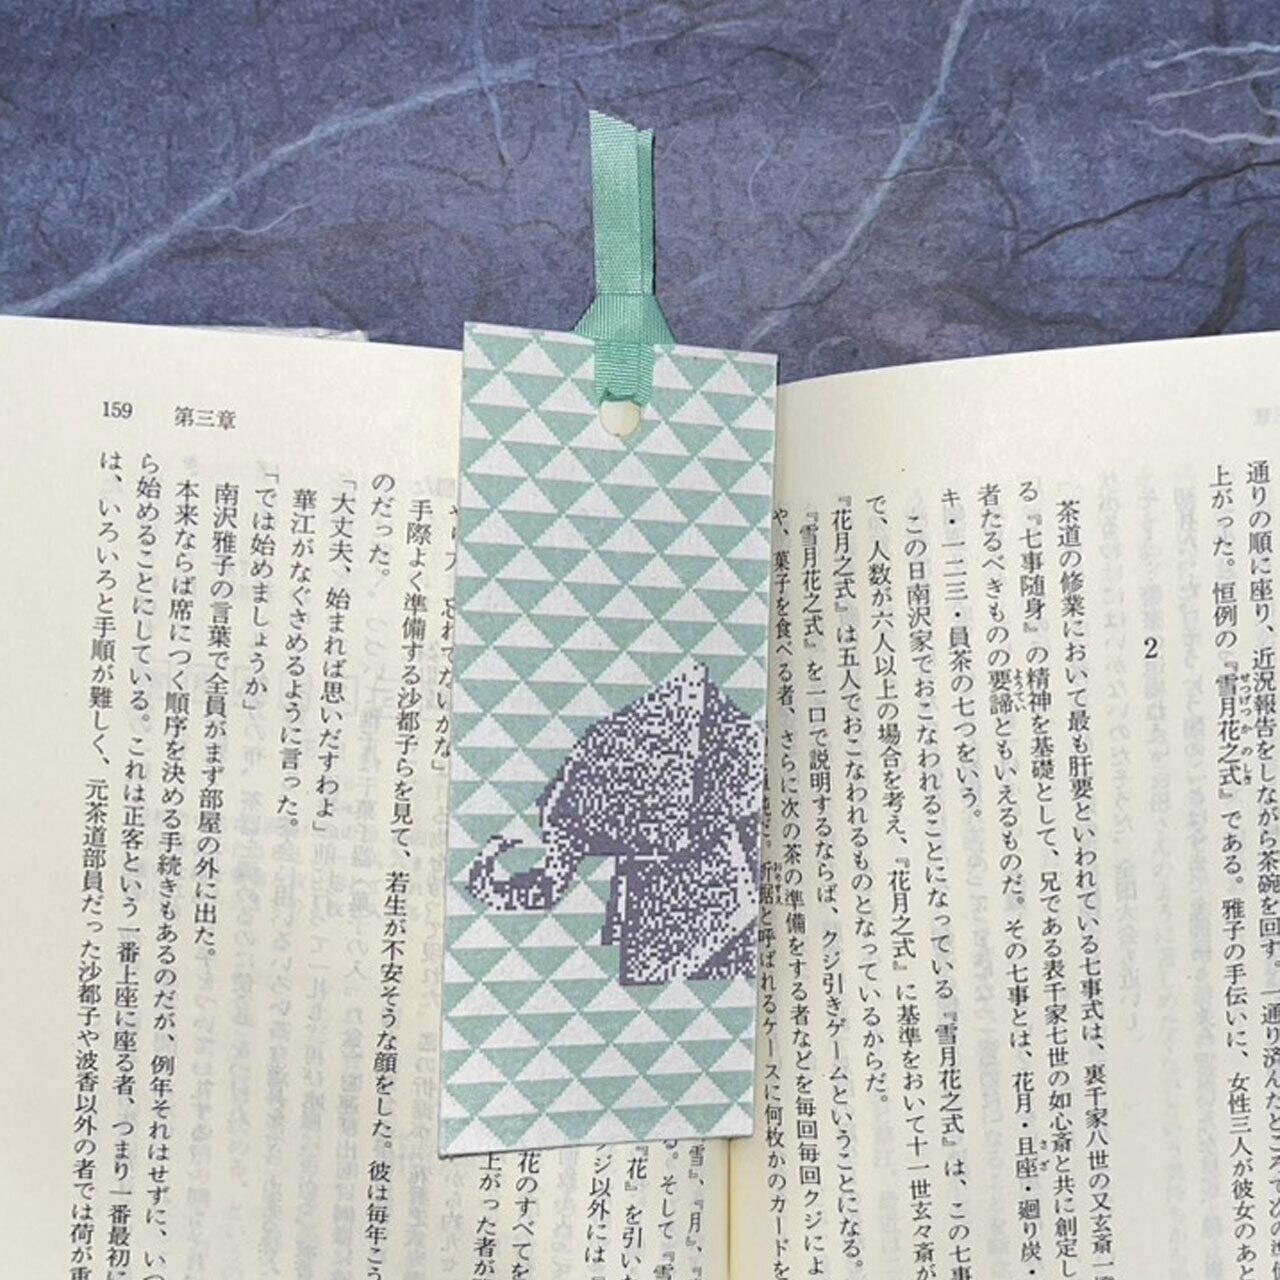 通りの順に座り、近況報告をしながら茶碗を回す。一通り済んだところで次の準
上がった。恒例の『雪月花之式』である。雅子の手伝いに、女性三人が彼女のあと
2
茶道の修業において最も肝要といわれている七事式は、裏千家八世の又玄斎一
る『七事随身』の精神を基礎として、兄である表千家七世の如心斎と共に創定し
者たるべきものの要諦ともいえるものだ。その七事とは、花月・且座・廻り炭・
キ・一二三・員茶の七つをいう。
この日南沢家でおこなわれることになっている『雪月花之式』は、この七事
で、人数が六人以上の場合を考え、『花月之式』に基準をおいて十一世玄々斎が
『花月之式』は五人でおこなわれるものとなっているからだ。
『雪月花之式』を一口で説明するならば、クジ引きゲームということになる。
や、菓子を食べる者、さらに次の茶の準備をする者などを毎回毎回クジによ
折据と呼ばれるケースに何枚かのカードを
雪』、『月』、
る。そして『雪
『花』を引いた
ジ以外には『
花のすべてを
上がった者が
159 第三章
手際よく準備する沙都子らを見て、若生が不安そうな顔をした。彼は毎年こう
のだった。
「大丈夫、始まれば思いだすわよ」
華江がなぐさめるように言った。
「では始めましょうか」
南沢雅子の言葉で全員がまず部屋の外に出た。
本来ならば席につく順序を決める手続きもあるのだが、例年それはせずに、いつ
ら始めることにしている。これは正客という一番上座に座る者、つまり一番最初に
は、いろいろと手順が難しく、元茶道部員だった沙都子や波香以外の者では荷が重